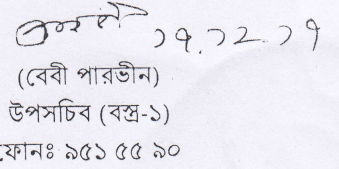 ১৭.১২.১৭
(বেবী পারভীন)
উপসচিব (বস্ত্র-১)
ফোনঃ ৯৫১ ৫৫ ৯০